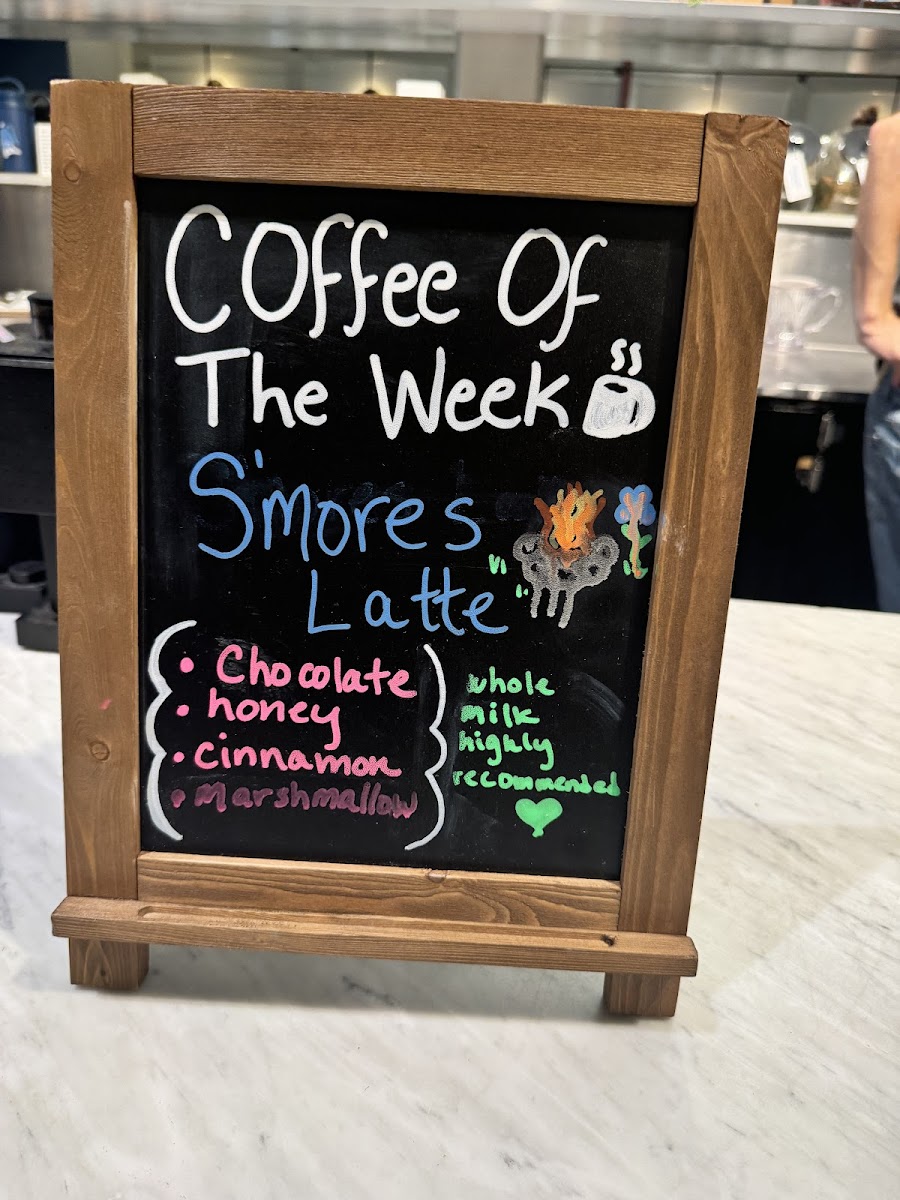 Coffee Of
The Week
S'mores
Latte
• Chocolate
• honey
• cinnamon
• Marshmallow
whole
milk
highly
recommended